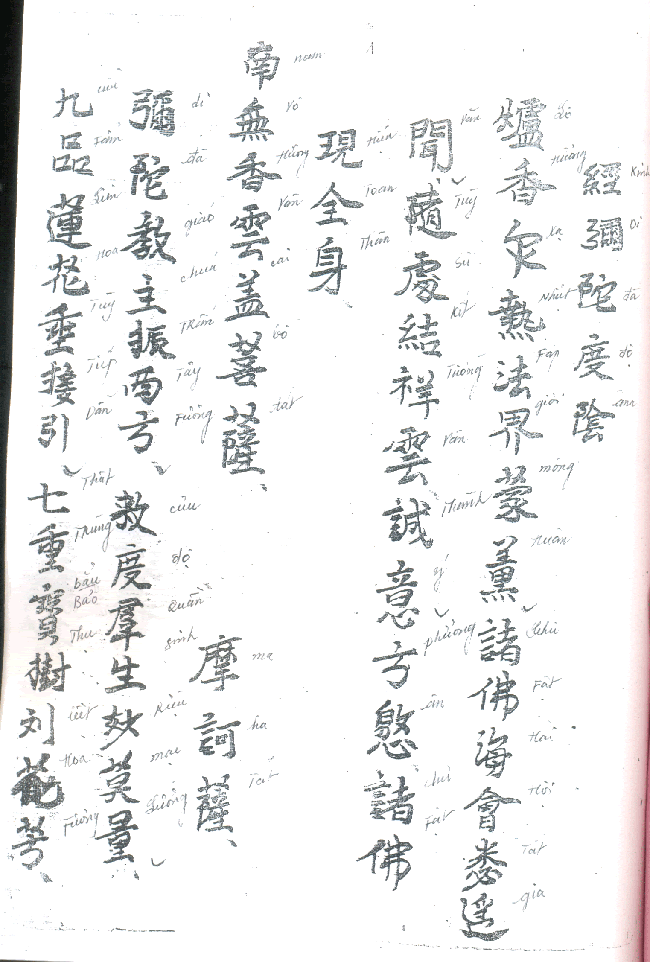 經彌陀度陰
Kinh Di đà độ âm
爐香乍熱法界蒙薰諸佛海會悉遥
Lô Hương Xạ Nhiệt Fap giới mông huân Chư Fật Hải Hội Tất gia
聞隨處結祥雲誠意方慇諸佛
Văn Tùy Sứ kết Tường Vân Thành ý phương ân chư Fật
現全身、
Hiển Toàn Thân
南無香雲盖菩薩、摩訶薩、
nam vô Hương Vân cái bồ tát ma ha Tát
彌陀教主振西方、救度羣生妙莫量、
di đà giáo chủ Thấn Tây Fương cứu độ Quần sinh Riệu mạc Lường
九品蓮花垂接引、七重寶樹列花芳、
cửu Fẩm Liên Hoa Tùy Tiếp Dẫn Thất Trùng bảo Bảo Thụ liệt Hoa Fương
1